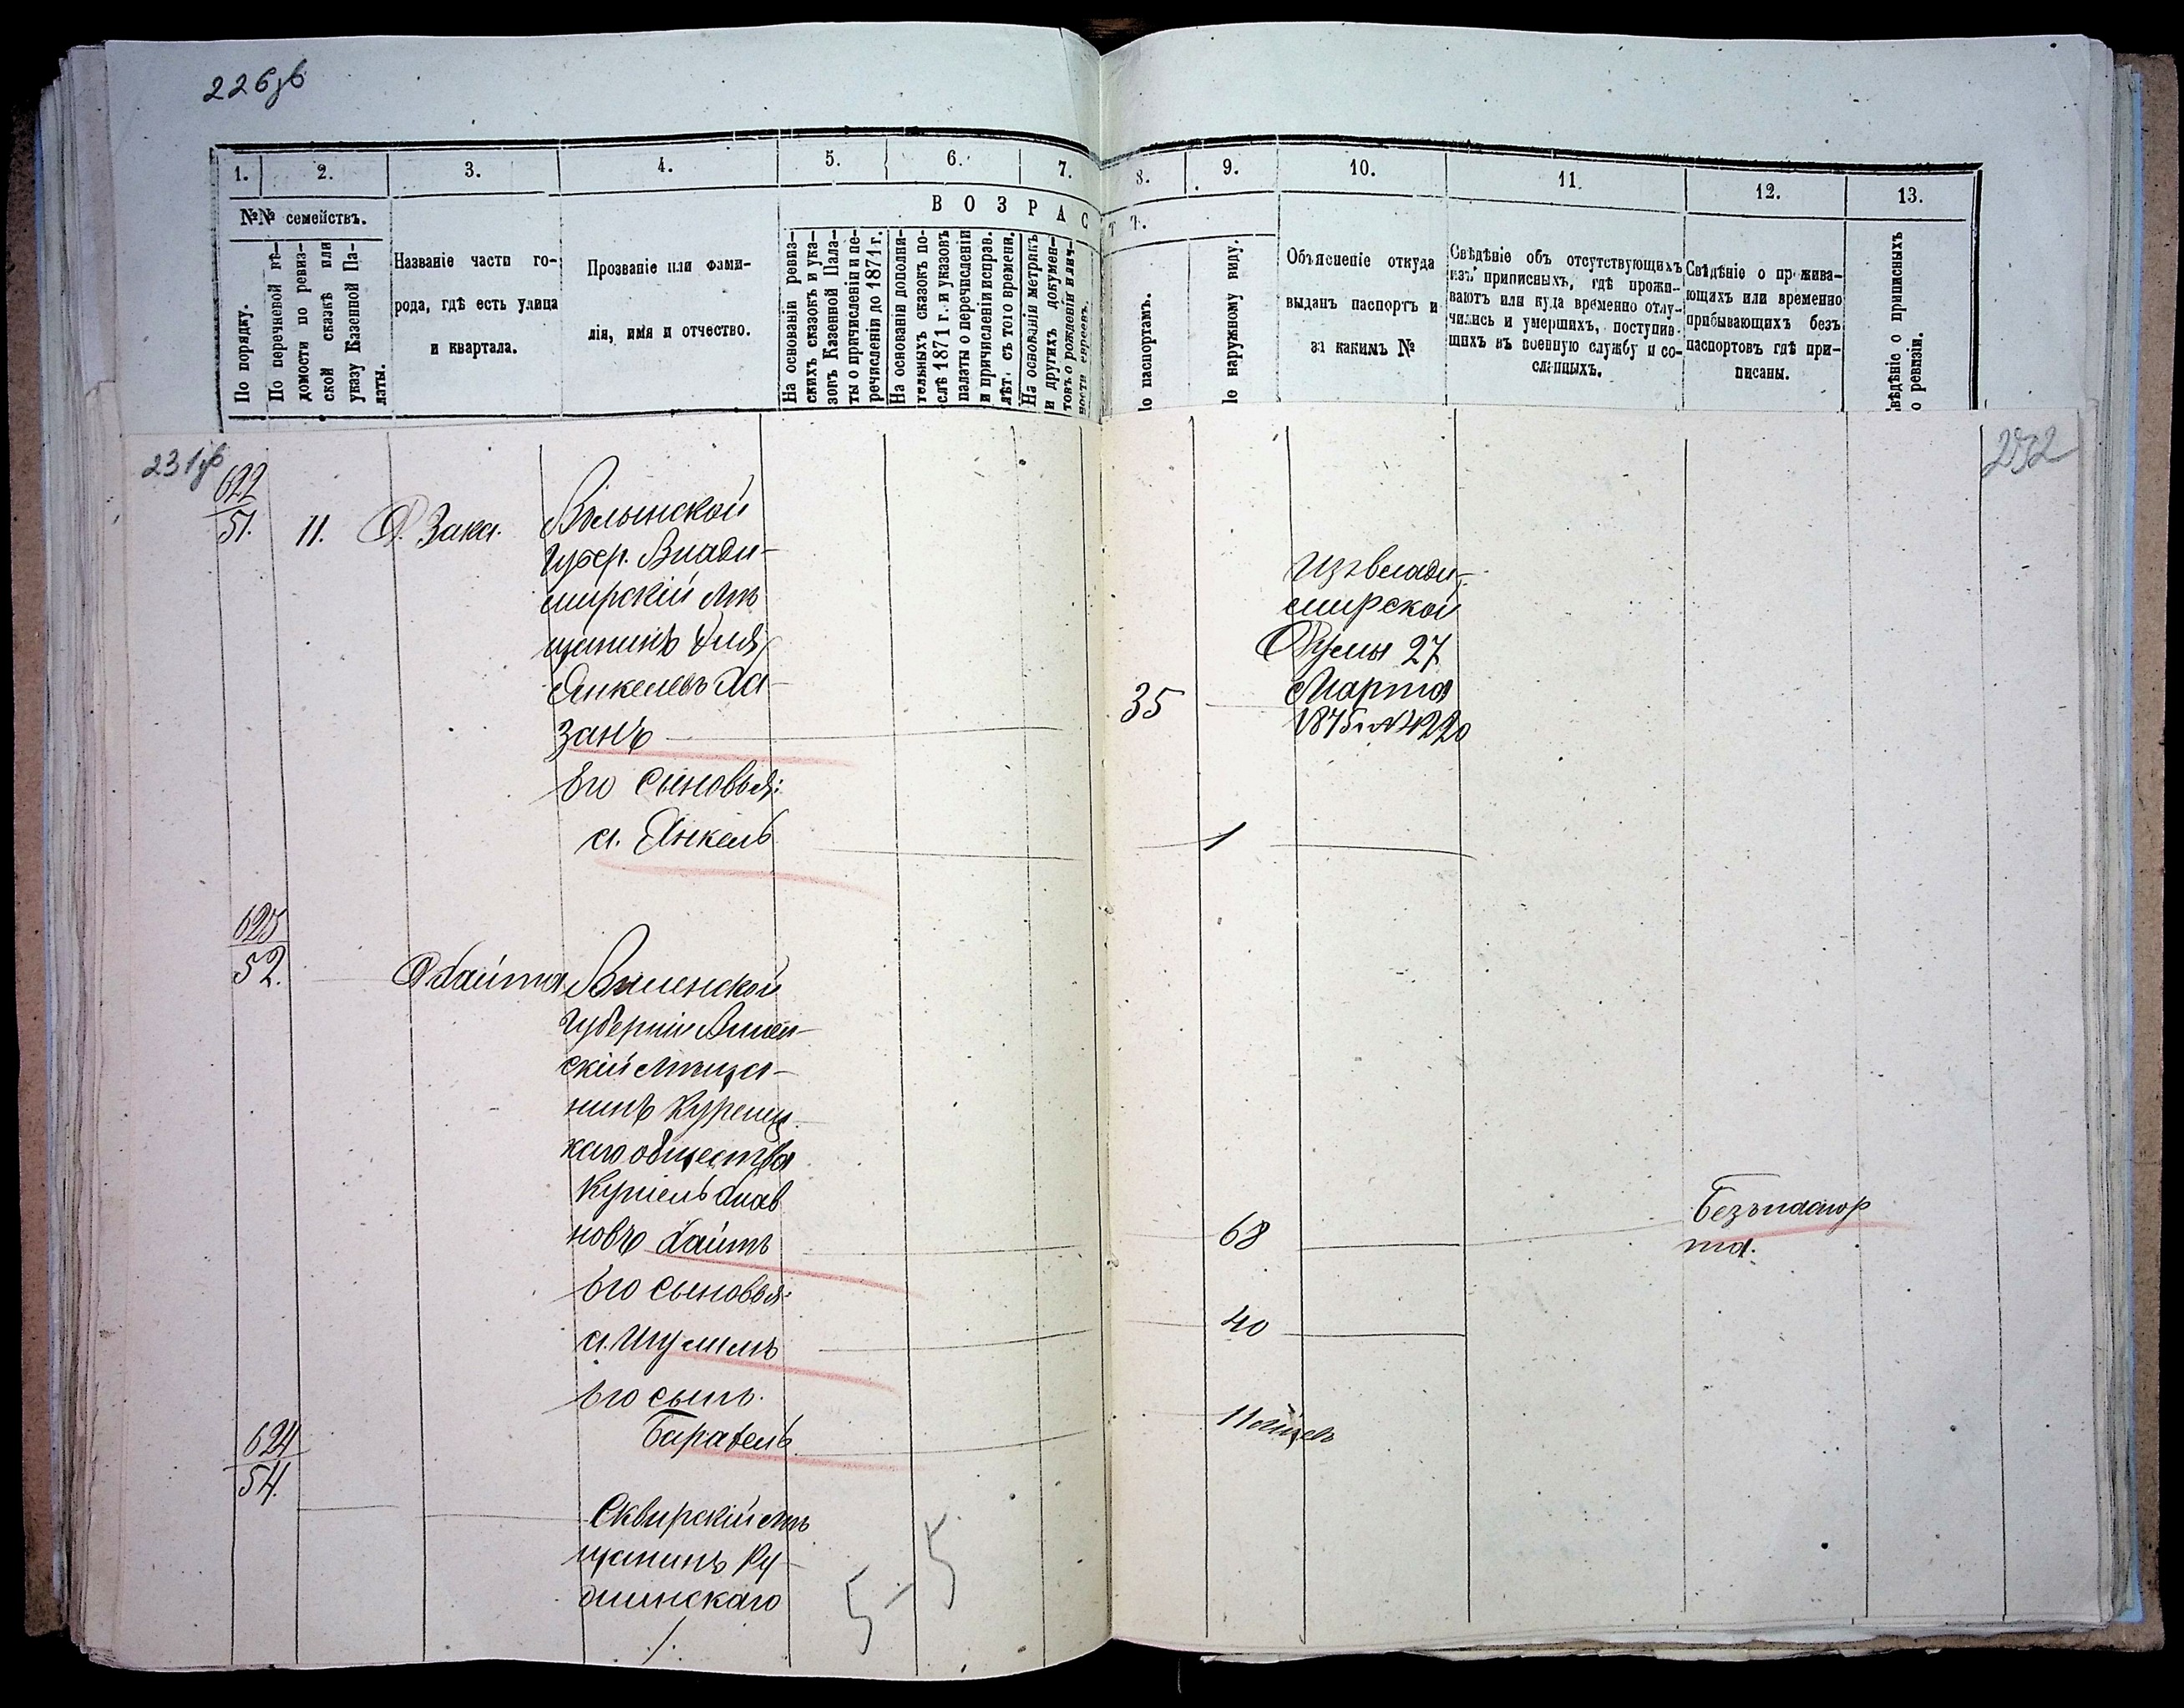 226об
1. 2. 3. 4. 5. 6. 7. 8. 9. 10. 11. 12. 13.
№№ семействъ.
ВОЗРАСТЪ.
По порядку.
По перечневой вѣ-
домости по ревиз-
ской сказкѣ или
указу Казенной Па-
латы.
Названіе части го-
рода, гдѣ есть улица
и квартала.
Прозваніе или фами-
лія, имя и отчество.
На основаніи ревиз-
скихъ сказокъ и ука-
зовъ Казенной Пала-
ты о причисленіи и пе-
речисленіи до 1871 г.
На основаніи дополни-
тельныхъ сказокъ по-
слѣ 1871 г. и указовъ
палаты о перечисленіи
и причисленіи исправ.
лѣт. съ того времени.
На основаніи метрикъ
и другихъ докумен-
товъ о рожденіи и лич-
ности евреевъ.
о паспортамъ.
о наружному виду.
Объясненіе откуда
выданъ паспортъ и
за какимъ №
Свѣдѣніе объ отсутствующихъ
изъ приписныхъ, гдѣ прожи-
ваютъ или куда временно отлу-
чились и умершихъ, поступив-
щихъ въ военную службу и со-
сланныхъ.
Свѣдѣніе о прожива-
ющихъ или временно
прибывающихъ безъ
паспортовъ гдѣ при-
писаны.
вѣдѣніе о приписныхъ
о ревизіи.
231об
232
622
51. 11. Д. Зака. Волынской
Губер. Влади-
мирскій мѣ
щанинъ
Янкелевъ Ха-
занъ 35
Изъ Влади-
мирской
Думы 27
Марта
1875 г. №4220
Его сыновья:
а. Янкель 1
623
52. Д. Хаита. Виленской
Губерніи Вилен-
скій мѣща-
нинъ Куренец
каго общества
новъ Хаитъ 68 Безъ паспор
та.
Его сыновья:
а. Шумилъ 40
Его сынъ.
11 мѣсяц.
624
54.
Сквирскій мѣ
щанинъ
5-5